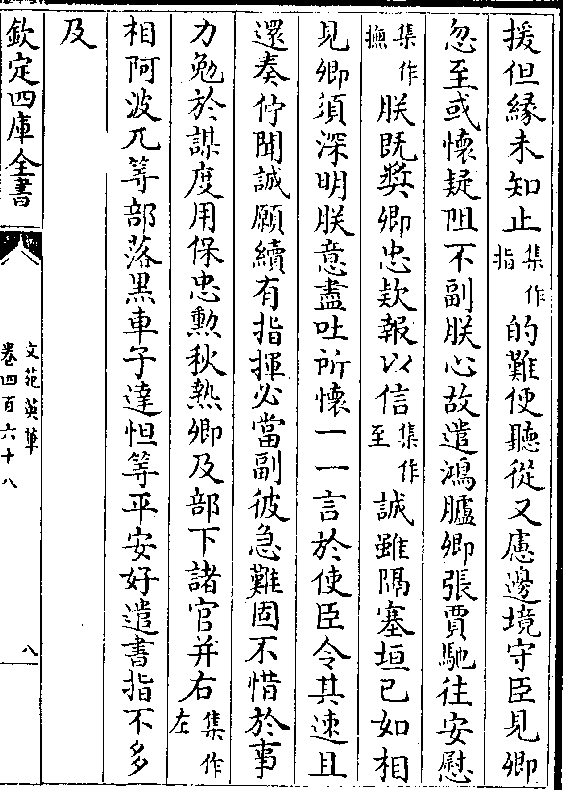 援但緣未知止集作指的難便聽從又慮邊境守臣見卿
忽至或懷疑阻不副朕心故遣鴻臚卿張賈馳往安慰
集作撫朕既奬卿忠欵報以信集作至誠雖隔塞垣已如相
見卿須深明朕意盡吐所懷一一言於使臣令其速且
還奏佇聞誠願續有指揮必當副彼急難固不惜於事
力勉於謀度用保忠勲秋熱卿及部下諸官并右集作左
相阿波兀等部落黒車子達怛等平安好遣書指不多
及
欽定四庫全書
文苑英華
卷四百六十八
八